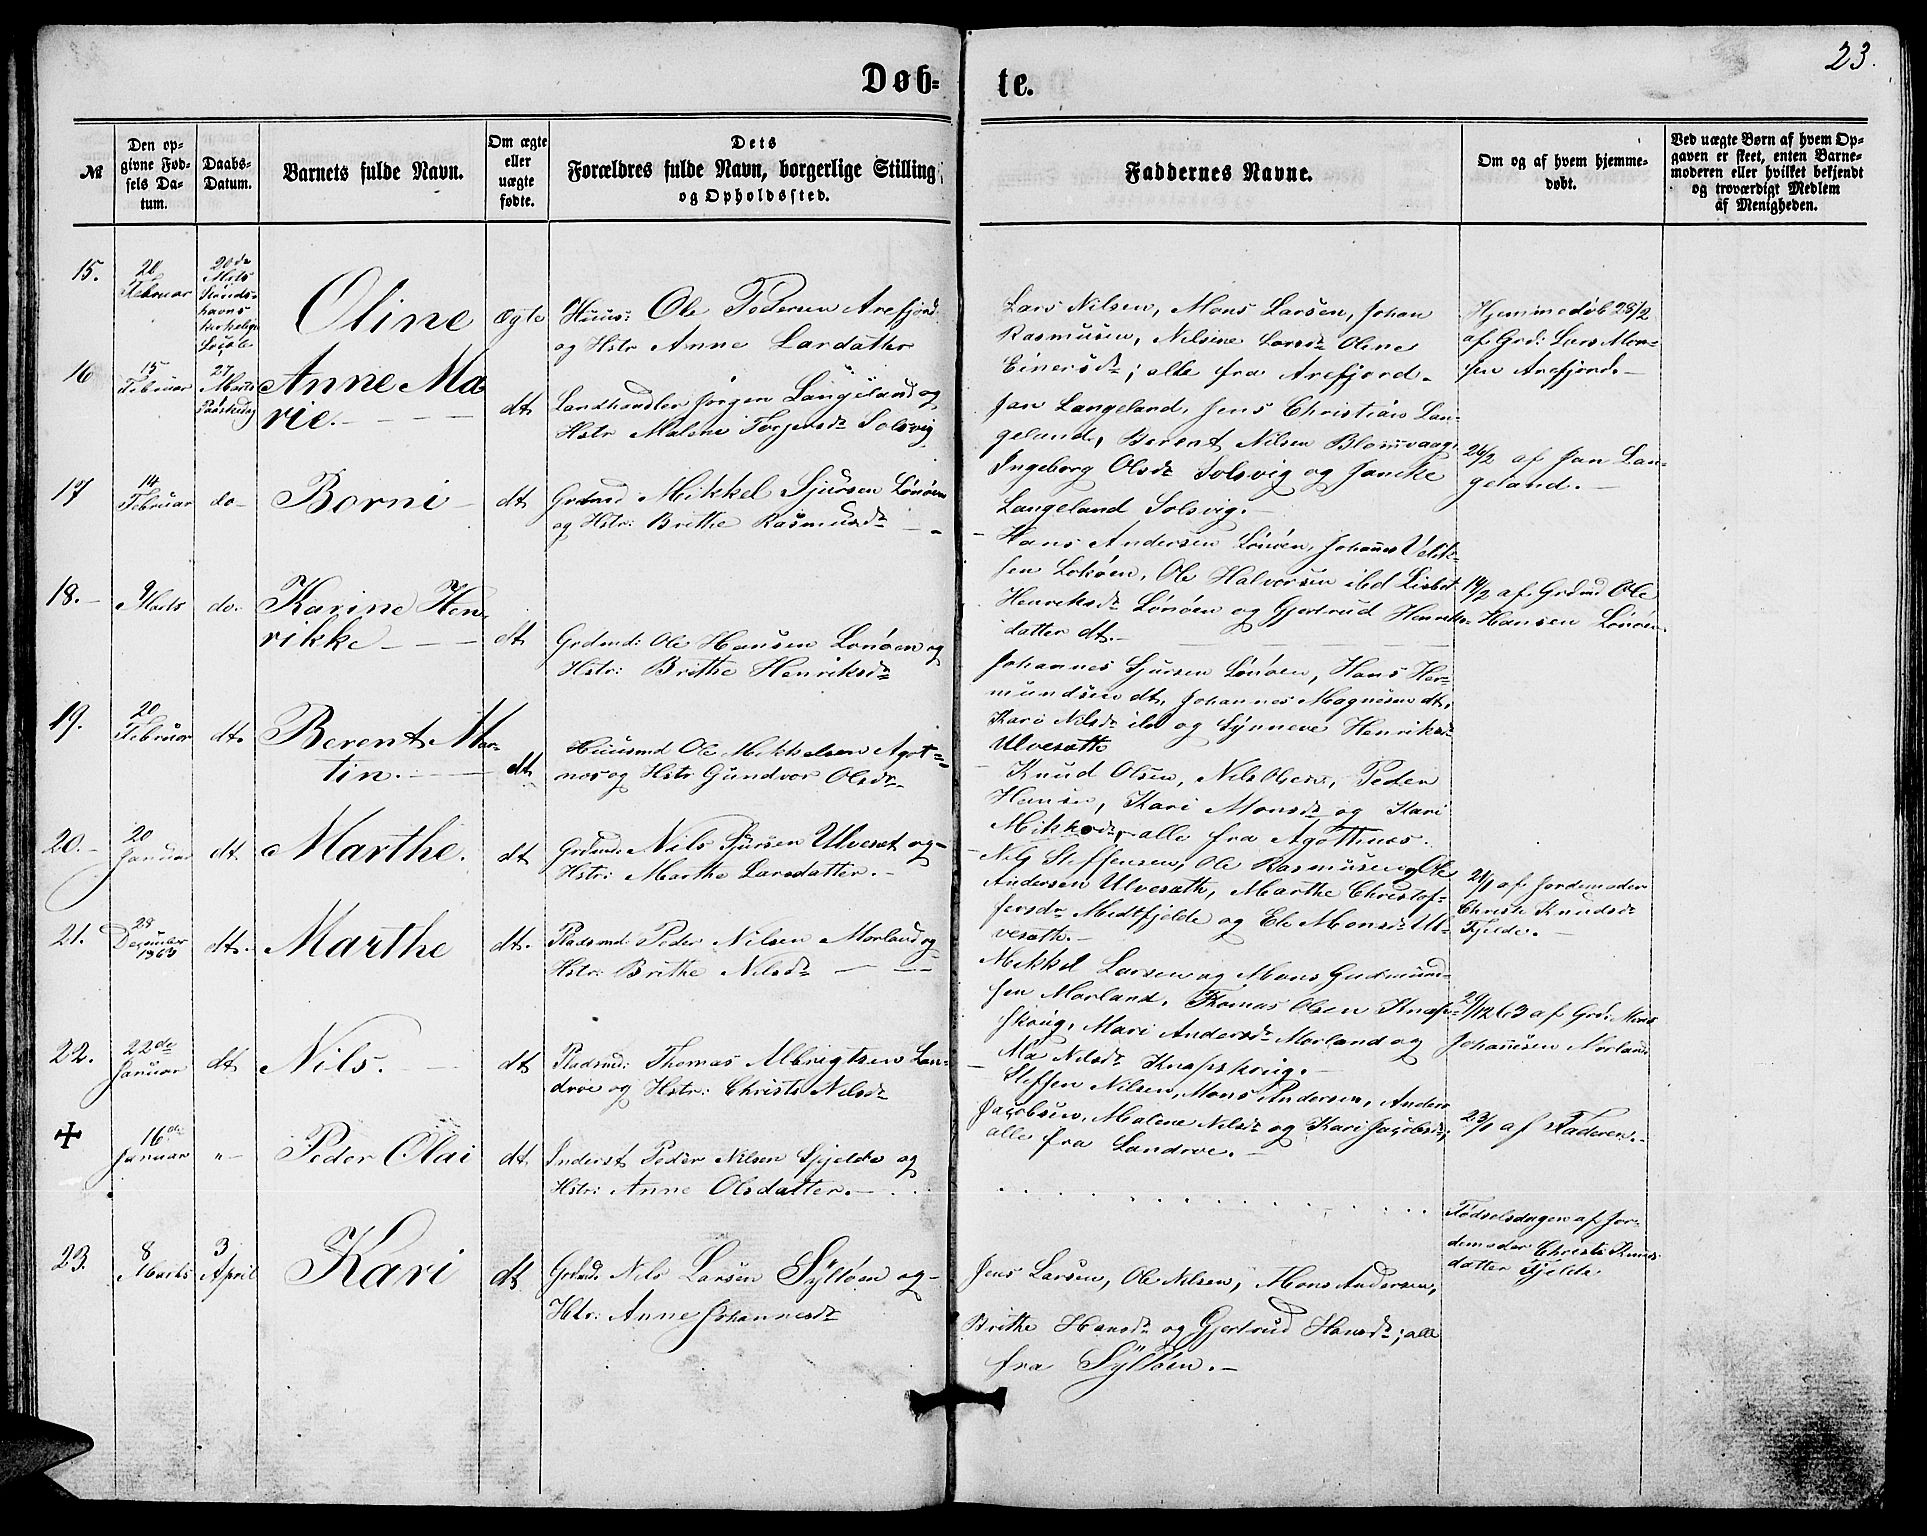 23.
Døb-
te.
№
Den op-
givne Fød-
sels Da-
tum.
Daabs-
Datum.
Barnets fulde Navn.
Om ægte
eller
uægte
fødte.
Dets
Forældres fulde Navn, borgerlige Stilling
og Opholdssted.
Faddernes Navne.
Om og af hvem hjemme-
døbt.
Ved uægte Børn af hvem Op-
gaven er skeet, enten Barne-
moderen eller hvilket bekjendt
og troværdigt Medlem
af Menigheden.
15.
Februar
Oline
ægte
Huus: Ole Pedersen Arefjord
og Hstr Anne Larsdatter
Lars Nilsen, Mons Larsen, Johan
Rasmusen, Nilsine Larsdr Oline
Einersdr; alle fra Arefjord.
Hjemmedøb 28/2
af Grd: Lars Mon-
sen Arefjord.
16
15
Februar
27
Marts
Paaskedag
Anne Ma
rie.
dt
Landhandler Jørgen Langeland og
Hstr Malene Torjersdr Solsvig
Jan Langeland, Jens Christian Lan-
geland, Berent Nilsen Blomvaag,
Ingeborg Olsdr Solsvig og Jancke
Langeland Solsvig.
26/2 af Jan Lan-
geland.
17
14
Februar
do
Borni
dt
Grdmd Mikkel Sjursen Lønøen
og Hstr: Brithe Rasmusdr
Hans Andersen Lønøen, Johannes
sen Lokøen, Ole Halvorsen ibd Lisbet
Henriksdr Lønøen og Gjertrud Henriks-
datter dt.
14/2 af Grdmd Ole
Hansen Lønøen
18.
9
Marts
do.
Karine Hen
rikke
dt
Grdmd: Ole Hansen Lønøen og
Hstr: Brithe Henriksdr
Johannes Sjursen Lønøen, Hans Her-
mundsen dt, Johannes Magnesen dt,
Kari Nilsdr ibd og Synneve Henriksdr
Ulvesæth
19.
20
Februar
dt.
Berent Mar-
tin.
dt
Huusmd Ole Mikkelsen Agot-
nes og Hstr Gundvor Olsdr
Knud Olsen, Nils Olsen, Peder
Hansen, Kari Monsdr og Kari
Mikkelsdr, alle fra Agothnes.
20.
20
Januar
dt.
Marthe.
dt
Grdmd: Nils Sjursen Ulveset og
Hstr: Marthe Larsdatter.
Nils Steffensen, Ole Rasmusen og Ole
Andersen Ulvesæth, Marthe Christof-
fersdr Midtfjelde og Eli Monsdr Ul-
vesæth.
21/1 af Jordemoder
Christi Knudsdr
Fjelde.
21.
28
December
1863
dt.
Marthe
dt.
Pladsmd Peder Nilsen Morland og
Hstr: Brithe Nilsdr
Mikkel Larsen og Mons Gudmund-
sen Morland, Thomas Olsen Knap-
skoug, Mari Andersdr Morland og
Nilsdr Knapskoug.
29/12 63 af Grd: Mons
Johannesen Morland
22.
22de
Januar
dt
Nils.
dt
Pladsmd: Thomas Albrigtsen Lan-
droe og Hstr: Christi Nilsdr
Steffen Nilsen, Mons Andersen, Anders
Jacobsen, Malene Nilsdr og Kari Jacobsdr;
alle fra Landroe.
23/1 af Faderen.
✝
16de
Januar
"
Peder Olai
dt
Inderst Peder Nilsen Fjelde og
Hstr: Anne Olsdatter.
Fødselsdagen af Jor-
demoder Christi Knuds-
datter Fjelde
23.
8
Marts
3
April
Kari
dt
Grdmd. Nils Larsen Syltøen og
Hstr: Anne Johannesdr
Jens Larsen, Ole Nilsen, Mons Andersen,
Brithe Hansdr og Gjertrud Hansdr; alle
fra Syltøen.